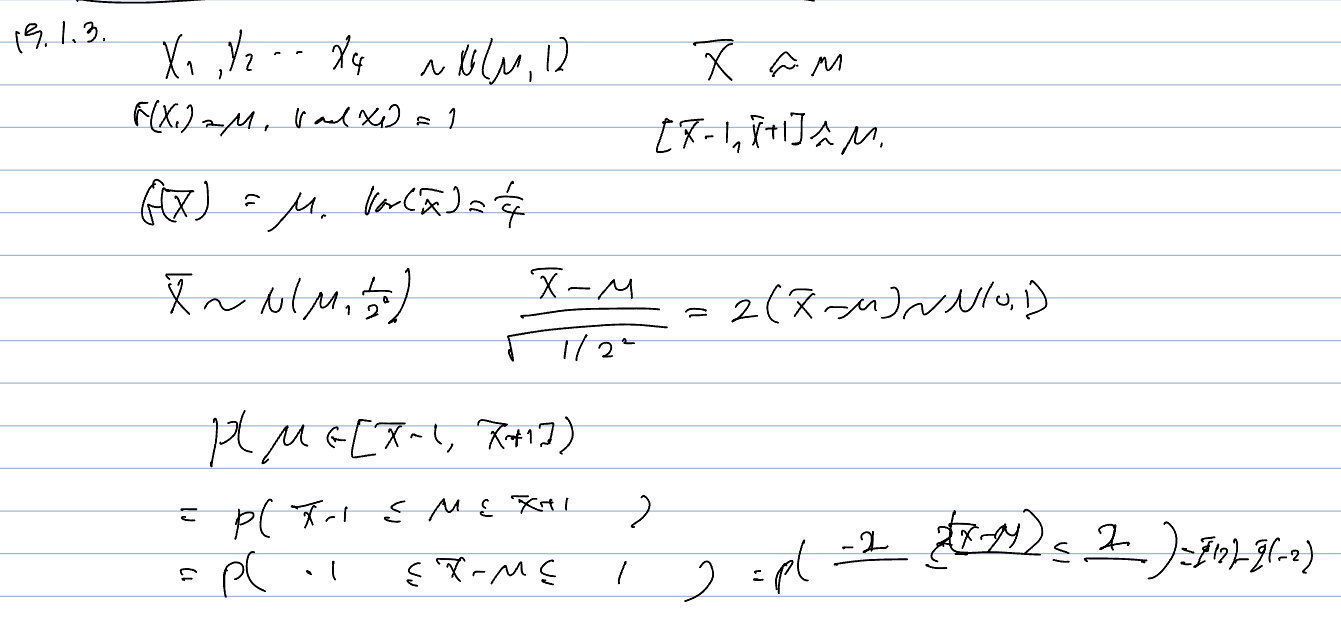 9.1.3. X₁, X₂ ·· X₄ ~ N(μ, 1) X̄ ≈ μ
E(X₁) = μ, Var(X₁) = 1 [X̄-1, X̄+1] ≈ μ.
E(X̄) = μ. Var(X̄) = 1/4
X̄ ~ N(μ, 1/2²) (X̄-μ)/√(1/2²) = 2(X̄-μ) ~ N(0,1)
P( μ ∈ [X̄-1, X̄+1])
= P( X̄-1 ≤ μ ≤ X̄+1 )
= P( -1 ≤ X̄-μ ≤ 1 ) = P( -2 ≤ 2(X̄-μ) ≤ 2 ) = Φ(2)-Φ(-2)